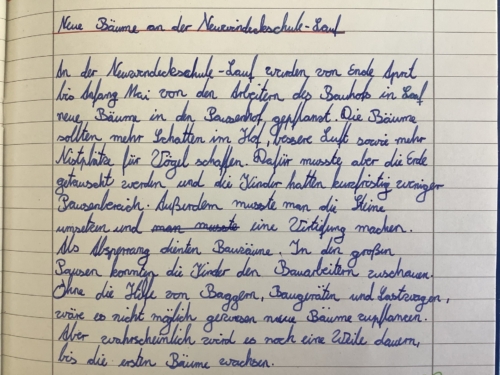 Neue Bäume an der Neuwindeckschule-Lauf
An der Neuwindeckschule-Lauf wurden von Ende April
bis Anfang Mai von den Arbeitern des Bauhofs in Lauf
neue Bäume in den Pausenhof gepflanzt. Die Bäume
sollten mehr Schatten im Hof, bessere Luft sowie mehr
Nistplätze für Vögel schaffen. Dafür musste aber die Erde
getauscht werden und die Kinder hatten kurzfristig weniger
Pausenbereich. Außerdem musste man die Steine
umsetzen und man musste eine Vertiefung machen.
Als Absperrung dienten Bauzäune. In den großen
Pausen konnten die Kinder den Bauarbeitern zuschauen.
Ohne die Hilfe von Baggern, Baugeräten und Lastwagen,
wäre es nicht möglich gewesen neue Bäume zupflanzen.
Aber wahrscheinlich wird es noch eine Weile dauern,
bis die ersten Bäume wachsen.